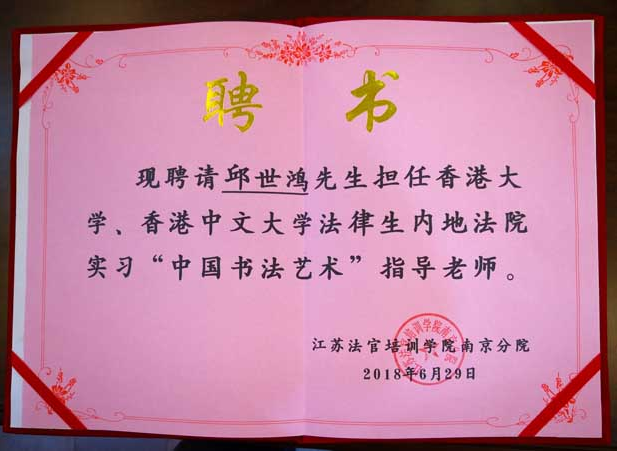 聘 书
现聘请邱世鸿先生担任香港大
学、香港中文大学法律生内地法院
实习“中国书法艺术”指导老师。
江苏法官培训学院南京分院
2018年6月29日